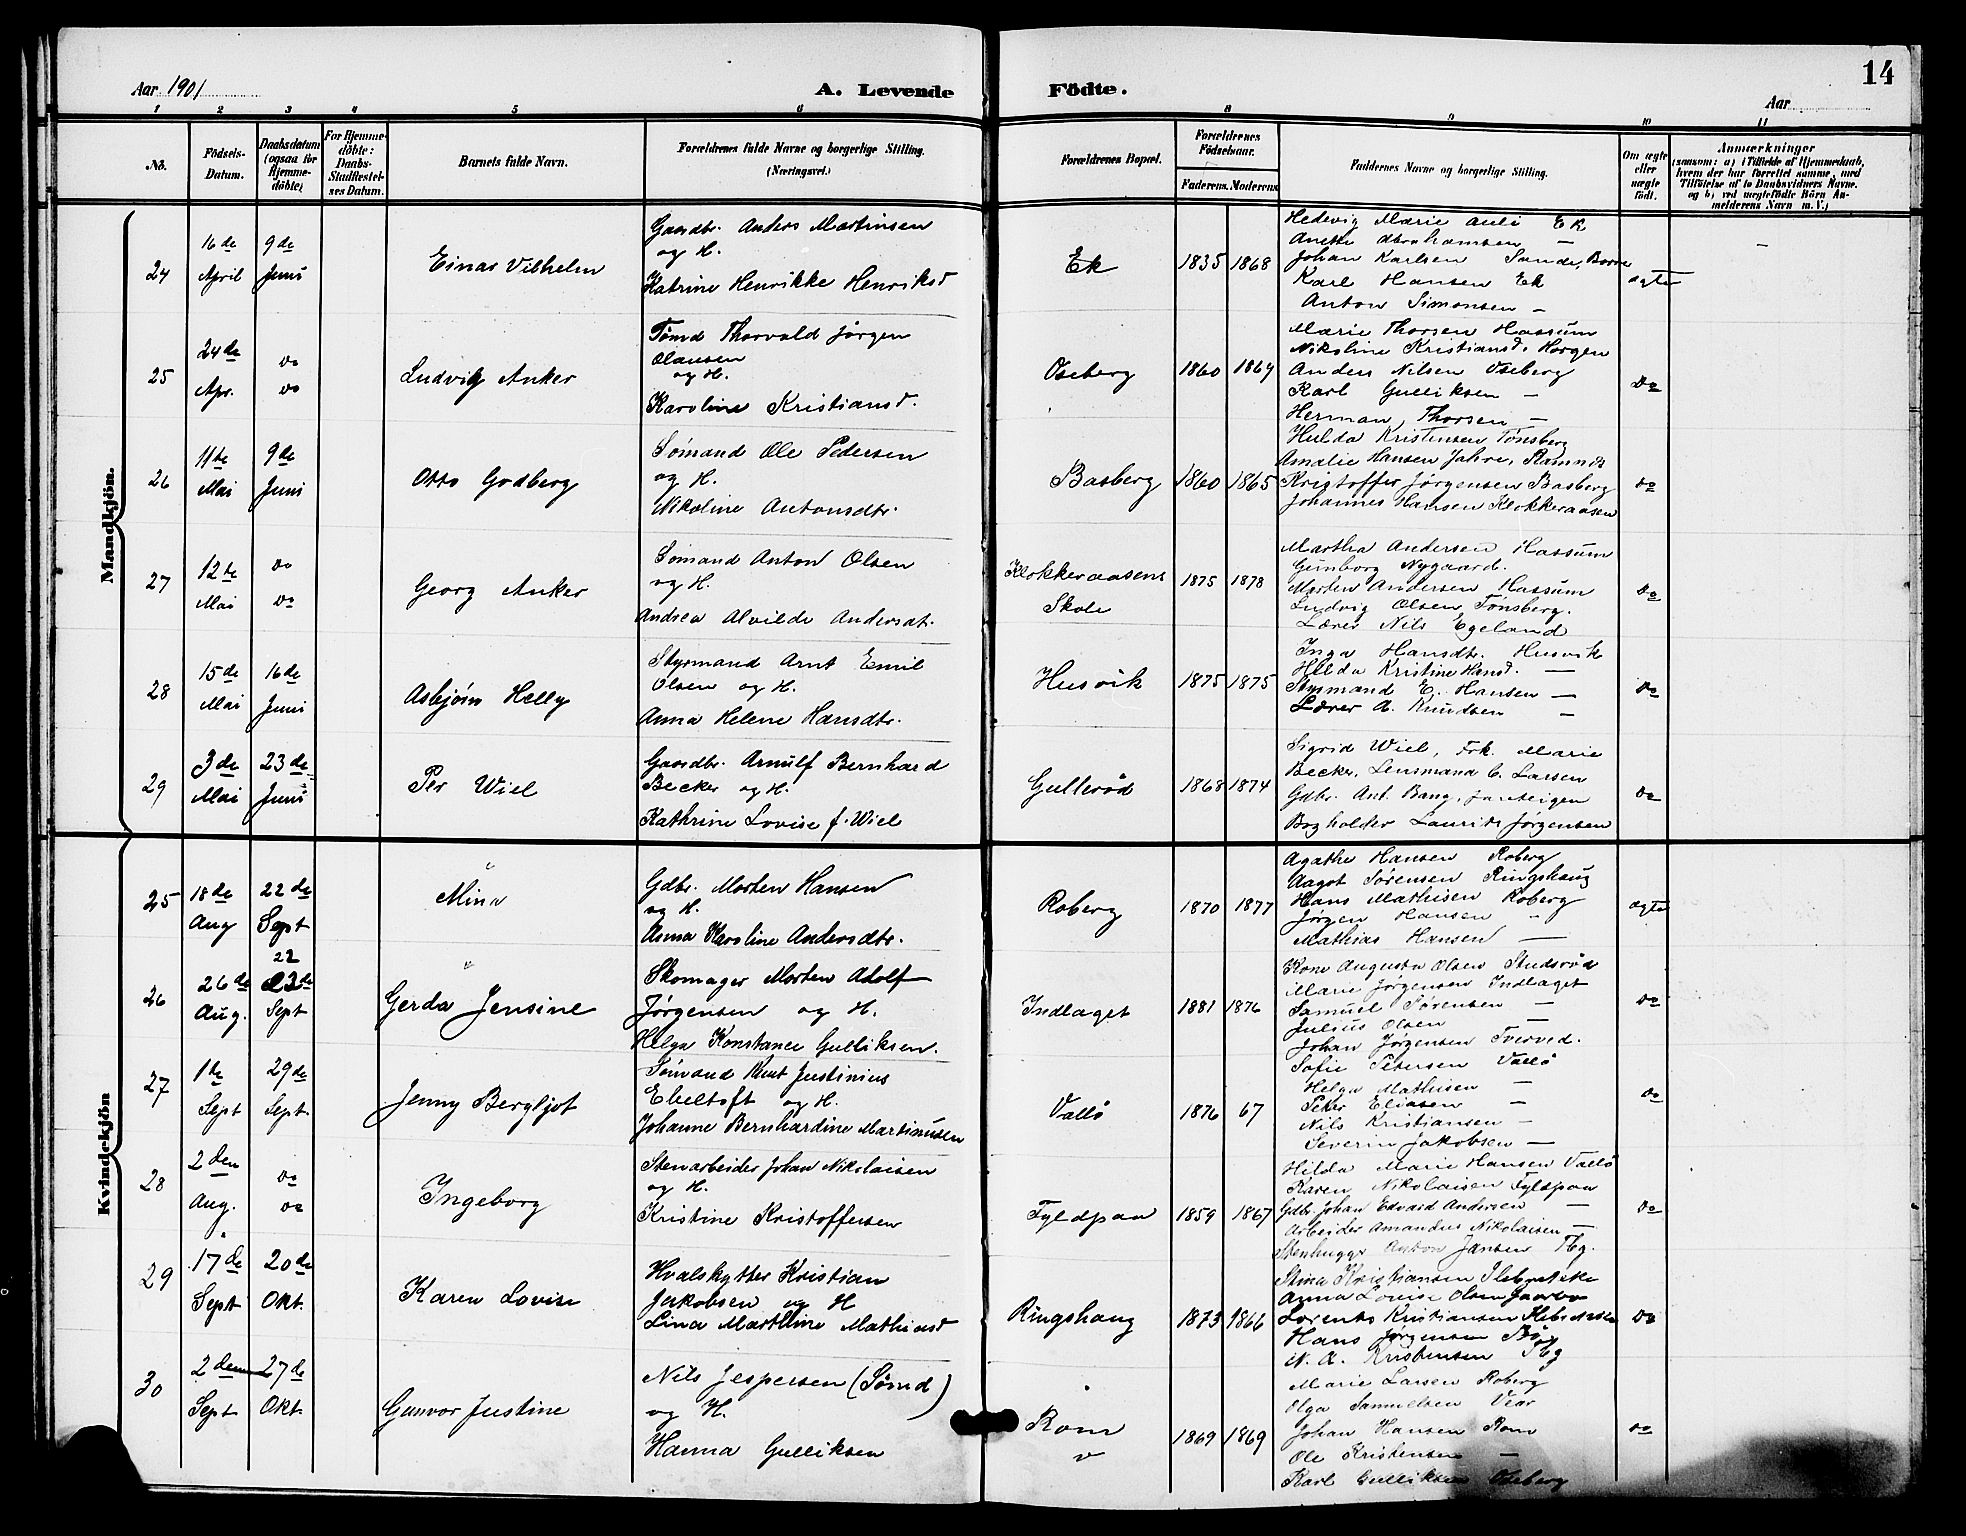 Aar 1901 A. Levende Födte. Aar 14
1 2 3 4 5 6 8 9 10 11
No. Födsels-Datum. Daabsdatum (ogsaa for Hjemmedöbte) For Hjemmedöbte: Daabs-Stadfestelses Datum. Barnets fulde Navn. Forældrenes fulde Navne og borgerlige Stilling. (Næringsvei.) Forældrenes Bopæl. Forældrenes Födselsaar. Faderens. Moderens. Faddernes Navne og borgerlige Stilling. Om ægte eller uægte födt. Anmærkninger (saasom: a) i Tilfælde af Hjemmedaab, hvem der har forrettet samme, med Tilföielse af to Daabsvidners Navne. og b) ved uægtefödte Börn Anmelderens Navn m. V.)
Mandkjön.
24
16de April
9de Juni
Einar Vilhelm
Gaardbr. Anders Martinsen
og H.
Katrine Henrikke Henriksd
Ek
1835 1868
Hedevig Marie Auli Ek
Anette Abrahamsen —
Johan Karlsen Sande, Borre
Karl Hansen Ek
Anton Simonsen —
ægte
—
25
24de Apr.
do do
Ludvig Anker
Tømd Thorvald Jørgen
Olausen
og H.
Karoline Kristiansd.
Oseberg
1860 1869
Marie Thorsen Hassum
Nikoline Kristiansd. Horgen
Anders Nilsen Oseberg
Karl Gulliksen —
Herman Thorsen —
do
26
11te Mai
9de Juni
Otto Godberg
Sømand Ole Pedersen
og H.
Nikoline Antonsdtr.
Basberg
1860 1865
Hulda Kristensen Tønsberg
Amalie Hansen Jahre, Ramnes
Kristoffer Jørgensen Basberg
Johannes Hansen Klokkeraasen
do
27
12te Mai
do do
Georg Anker
Sømand Anton Olsen
og H.
Andrea Alvilde Andersdt.
Klokkeraasens
Skole
1875 1878
Martha Andersen Hassum
Gunborg Nygaard.
Morten Andersen Hassum
Ludvig Olsen Tønsberg.
Lærer Nils Egeland
do
28
15de Mai
16de Juni
Asbjørn Helly
Styrmand Arnt Emil
Olsen og H.
Anna Helene Hansdtr.
Husvik
1875 1875
Inga Hansdtr. Husvik
Hilda Kristine Hansd. —
Styrmand E. Hansen —
Lærer A. Knudsen —
do
29
3de Mai
23de Juni
Per Wiel
Gaardbr. Arnulf Bernhard
Becker og H.
Kathrine Lovise f. Wiel
Gullerød
1868 1874
Sigrid Wiel, Frk. Marie
Becker, Lensmand C. Larsen
Gdbr. Ant. Bang, Jarlseigen
Bogholder Laurits Jørgensen
do
Kvindekjön
25
18de Aug
22de Sept
Mina
Gdbr. Morten Hansen
og H.
Anna Karoline Andersdtr.
Roberg
1870 1877
Agathe Hansen Roberg
Aagot Sørensen Ringshaug
Hans Mathisen Roberg
Jørgen Hansen —
Mathias Hansen —
ægte
26
26de Aug.
22
23de Sept
Gerda Jensine
Skomager Morten Adolf
Jørgensen og H.
Helga Konstance Gulliksen.
Indlaget
1881 1876
Kone Augusta Olsen Studsrød
Marie Jørgensen Indlaget
Samuel Sørensen —
Julius Olsen —
Johan Jørgensen Tverved.
do
27
1te Sept
29de Sept
Jenny Bergljot
Sømand Knut Justinius
Ebeltoft og H.
Johanne Bernhardine Martinusen
Vallø
1876 67
Sofie Petersen Vallø
Helga Mathisen —
Peter Eliasen —
Nils Kristiansen —
Severin Jakobsen —
do
28
2den Aug.
do do
Ingeborg
Stenarbeider Johan Nikolaisen
og H.
Kristine Kristoffersen
Fyldpaa
1859 1867
Hilda Marie Hansen Vallø
Karen Nikolaisen Fyldpaa
Gdbr. Johan Edvard Andersen —
Arbeider Amandus Nikolaisen —
Stenhugger Anton Jansen Tbg.
do
29
17de Sept
20de Okt.
Karen Lovise
Hvalskytter Kristian
Jakobsen og H
Lina Marthine Mathiasd
Ringshaug
1873 1866
Stina Kristiansen
Anna Lovise Olsen
Lorents Kristiansen
Hans Jørgensen Bø
N. A. Kristensen Tbg
do
30
2den Sept
27de Okt.
Gunvor Justine
Nils Jespersen (Sømd)
og H.
Hanna Gulliksen
Rom
1869 1869
Marie Larsen Roberg
Olga Samuelsen Vear
Johan Hansen Rom
Ole Kristensen —
Karl Gulliksen Oseberg
do